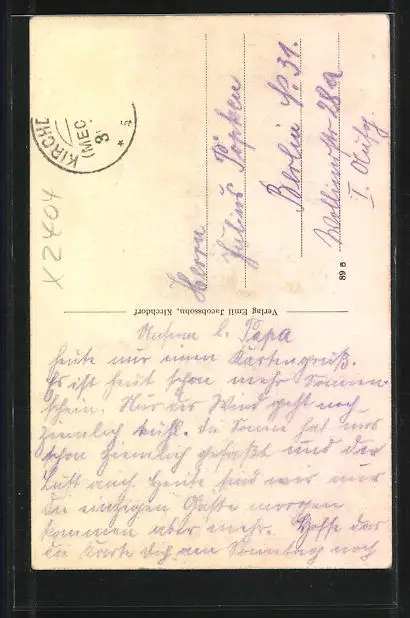 KIRCHD
(MEC
X2404
Herrn
Julius Pöpken
Berlin No 31.
Wollinerstr 28a
I. Aufg.
89 B
Verlag Emil Jacobssohn, Kirchdorf
Meinem l. Papa
heute nur einen Kartengruß.
Es ist heut schon mehr Sonnen-
schein. Nur der Wind geht noch
ziemlich kühl. die Sonne hat uns
schon ziemlich gefaßt und die
Luft auch. Heute sind wir nur
die einzigen Gäste morgen
kommen aber mehr. Hoffe das
die Karte dich am Sonntag noch